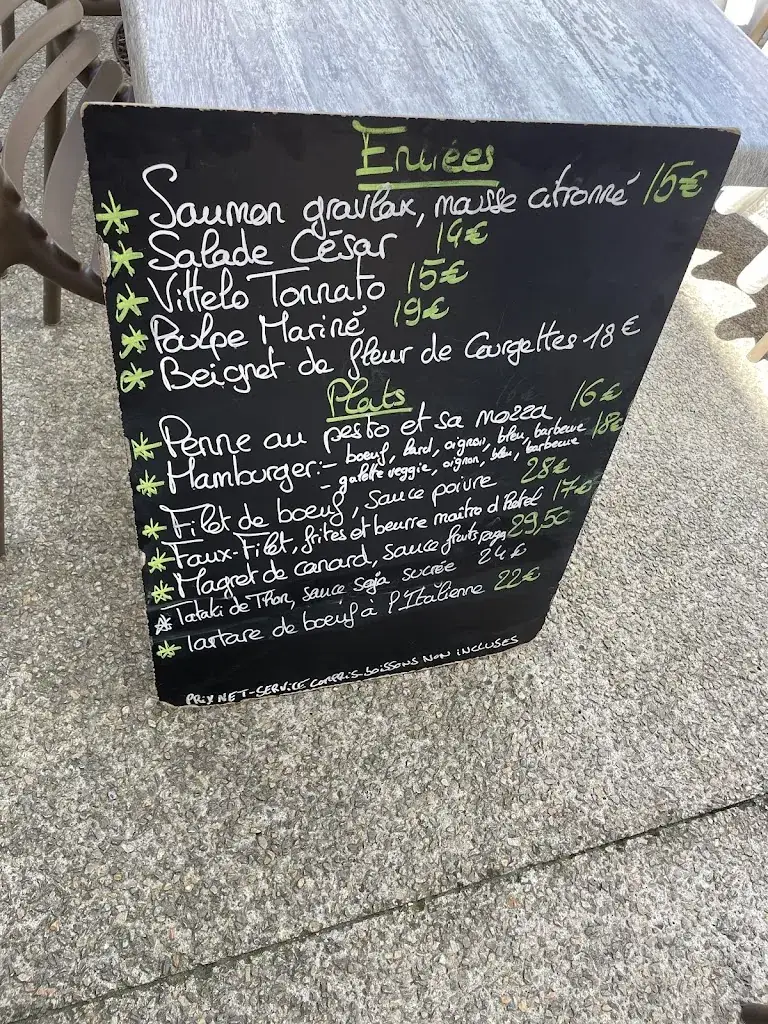 Entrées
* Saumon gravlax, mousse citronné 15€
* Salade César 19€
* Vittelo Tonnato 15€
* Poulpe Mariné 19€
* Beignet de fleur de Courgettes 18€
Plats
* Penne au pesto et sa mozza 16€
* Hamburger: - boeuf, lard, oignon, bleu, barbecue 18€
- galette veggie, oignon, bleu, barbecue
* Filet de boeuf, sauce poivre 28€
* Faux-Filet, frites et beurre maitre d'Hotel 17€
* Magret de canard, sauce fruits 29,50
* Tataki de Thon, sauce soja sucrée 24€
* Tartare de boeuf à l'Italienne 22€
PRIX NET-SERVICE COMPRIS-BOISSONS NON INCLUSES